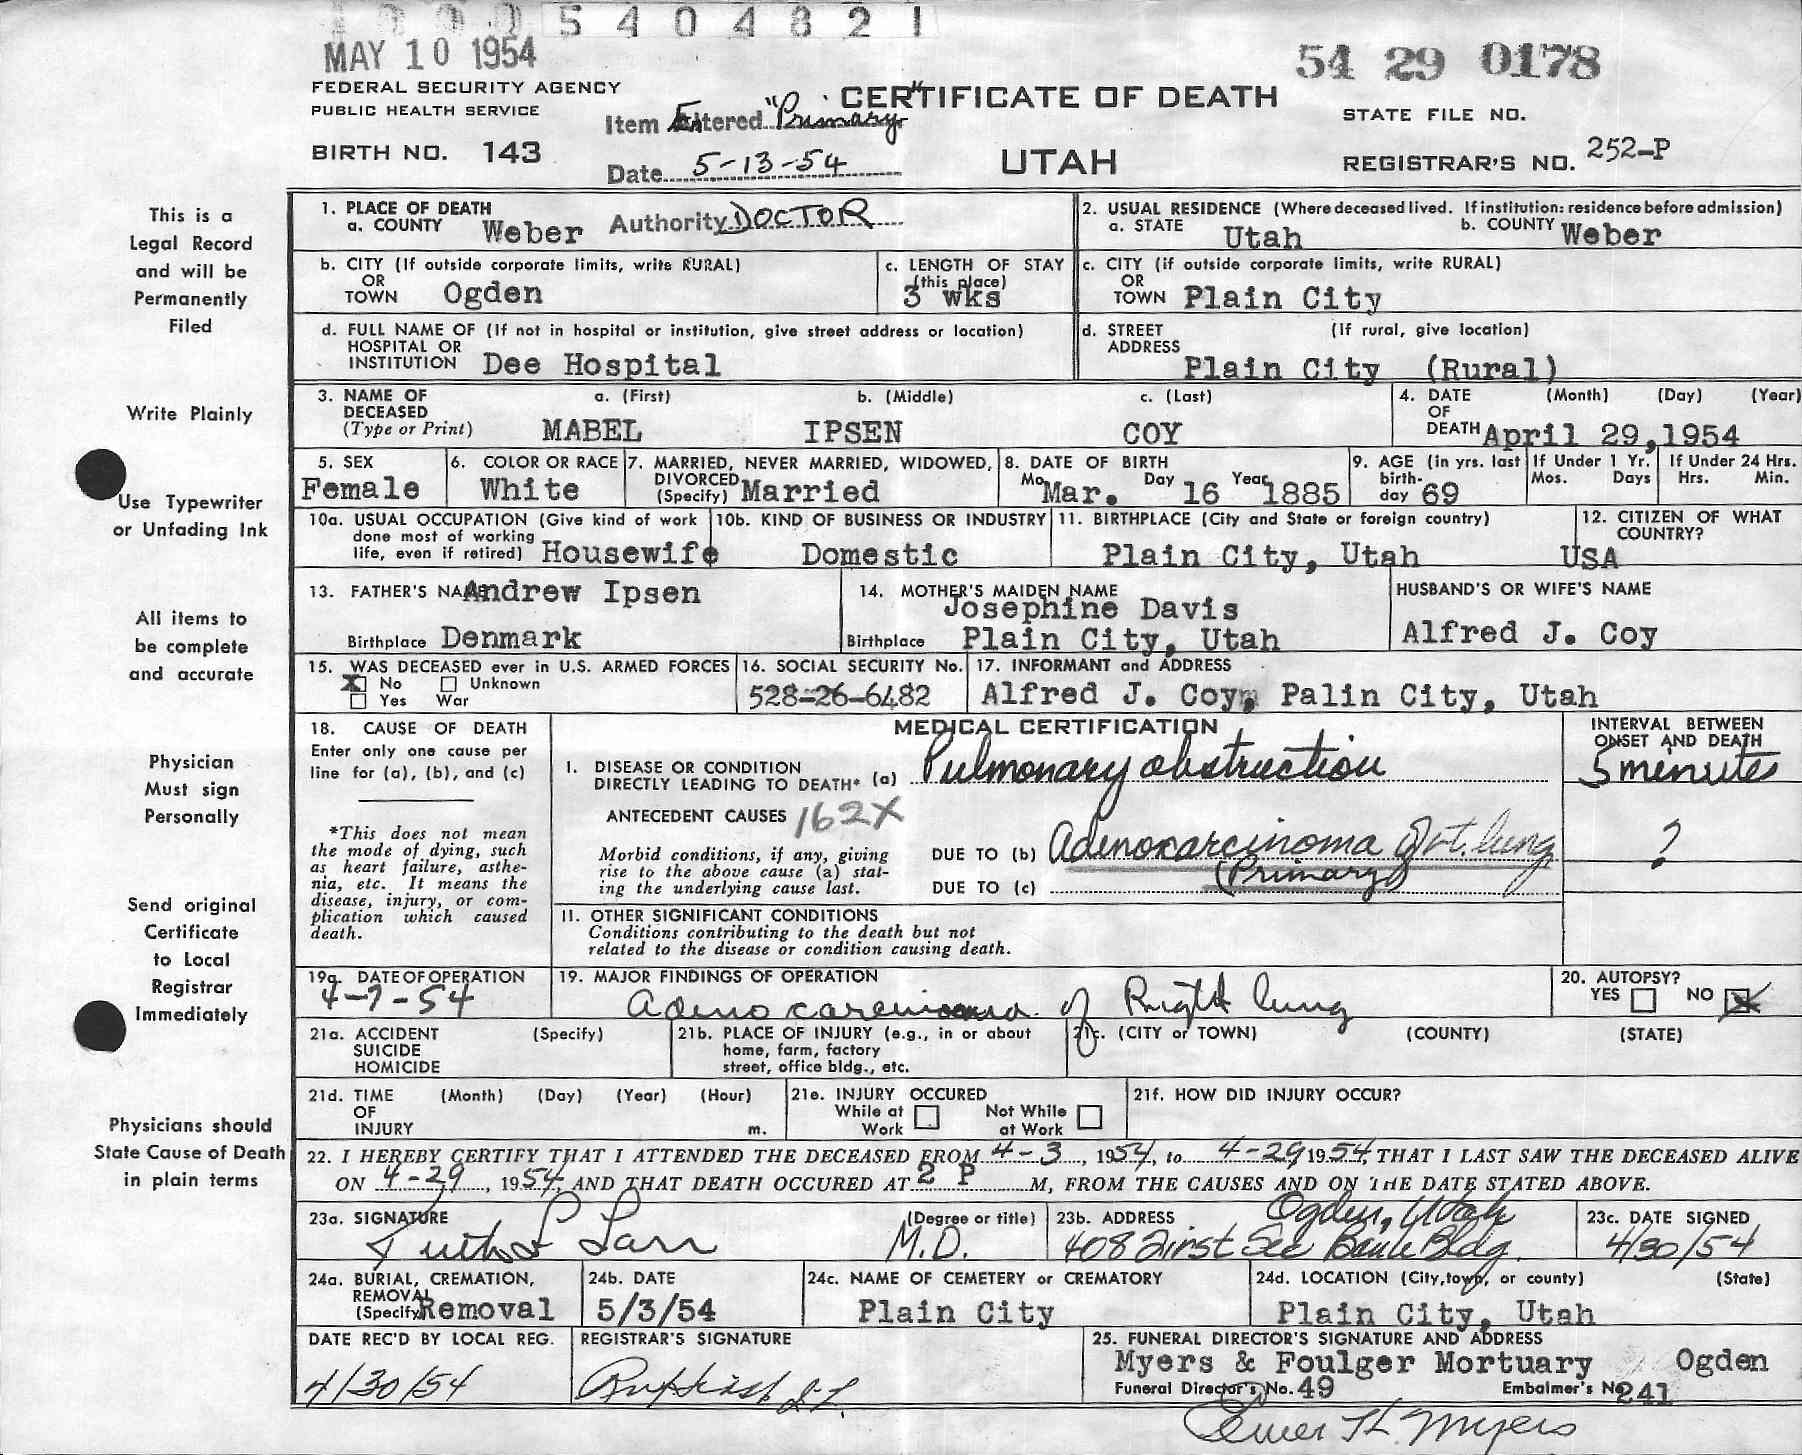 5 4 0 4 8 2 1
MAY 10 1954
54 29 0178
FEDERAL SECURITY AGENCY
PUBLIC HEALTH SERVICE
CERTIFICATE OF DEATH
STATE FILE NO.
Item Entered "Primary"
BIRTH NO. 143
UTAH
REGISTRAR'S NO. 252-P
Date 5-13-54
This is a
Legal Record
and will be
Permanently
Filed
Write Plainly
Use Typewriter
or Unfading Ink
All items to
be complete
and accurate
Physician
Must sign
Personally
Send original
Certificate
to Local
Registrar
Immediately
Physicians should
State Cause of Death
in plain terms
1. PLACE OF DEATH
a. COUNTY Weber Authority DOCTOR
2. USUAL RESIDENCE (Where deceased lived. If institution: residence before admission)
a. STATE Utah b. COUNTY Weber
b. CITY (If outside corporate limits, write RURAL)
OR
TOWN Ogden
c. LENGTH OF STAY
(this place)
3 wks
c. CITY (if outside corporate limits, write RURAL)
OR
TOWN Plain City
d. FULL NAME OF (If not in hospital or institution, give street address or location)
HOSPITAL OR
INSTITUTION Dee Hospital
d. STREET (If rural, give location)
ADDRESS
Plain City (Rural)
3. NAME OF a. (First) b. (Middle) c. (Last)
DECEASED
(Type or Print) MABEL IPSEN COY
4. DATE (Month) (Day) (Year)
OF
DEATH April 29, 1954
5. SEX
Female
6. COLOR OR RACE
White
7. MARRIED, NEVER MARRIED, WIDOWED,
DIVORCED
(Specify) Married
8. DATE OF BIRTH
Mo. Mar. Day 16 Year 1885
9. AGE (in yrs. last
birth-
day 69
If Under 1 Yr.
Mos. Days
If Under 24 Hrs.
Hrs. Min.
10a. USUAL OCCUPATION (Give kind of work
done most of working
life, even if retired) Housewife
10b. KIND OF BUSINESS OR INDUSTRY
Domestic
11. BIRTHPLACE (City and State or foreign country)
Plain City, Utah
12. CITIZEN OF WHAT
COUNTRY?
USA
13. FATHER'S NAME Andrew Ipsen
Birthplace Denmark
14. MOTHER'S MAIDEN NAME
Josephine Davis
Birthplace Plain City, Utah
HUSBAND'S OR WIFE'S NAME
Alfred J. Coy
15. WAS DECEASED ever in U.S. ARMED FORCES
X No Unknown
Yes War
16. SOCIAL SECURITY No.
528-26-6482
17. INFORMANT and ADDRESS
Alfred J. Coy, Palin City, Utah
18. CAUSE OF DEATH
Enter only one cause per
line for (a), (b), and (c)
*This does not mean
the mode of dying, such
as heart failure, asthe-
nia, etc. It means the
disease, injury, or com-
plication which caused
death.
MEDICAL CERTIFICATION
I. DISEASE OR CONDITION
DIRECTLY LEADING TO DEATH* (a) Pulmonary obstruction
ANTECEDENT CAUSES 162X
Morbid conditions, if any, giving
rise to the above cause (a) stat-
ing the underlying cause last.
DUE TO (b) Adenocarcinoma of rt. lung
(Primary)
DUE TO (c)
II. OTHER SIGNIFICANT CONDITIONS
Conditions contributing to the death but not
related to the disease or condition causing death.
INTERVAL BETWEEN
ONSET AND DEATH
5 minutes
?
19a. DATE OF OPERATION
4-7-54
19. MAJOR FINDINGS OF OPERATION
Adeno carcinoma of Right lung
20. AUTOPSY?
YES NO X
21a. ACCIDENT (Specify)
SUICIDE
HOMICIDE
21b. PLACE OF INJURY (e.g., in or about
home, farm, factory
street, office bldg., etc.
21c. (CITY or TOWN) (COUNTY) (STATE)
21d. TIME (Month) (Day) (Year) (Hour)
OF
INJURY m.
21e. INJURY OCCURED
While at Not While
Work at Work
21f. HOW DID INJURY OCCUR?
22. I HEREBY CERTIFY THAT I ATTENDED THE DECEASED FROM 4-3, 1954, to 4-29 1954, THAT I LAST SAW THE DECEASED ALIVE
ON 4-29, 1954, AND THAT DEATH OCCURED AT 2 P M, FROM THE CAUSES AND ON THE DATE STATED ABOVE.
23a. SIGNATURE (Degree or title)
M.D.
23b. ADDRESS Ogden, Utah
408 First Sec Bank Bldg.
23c. DATE SIGNED
4/30/54
24a. BURIAL, CREMATION,
REMOVAL
(Specify) Removal
24b. DATE
5/3/54
24c. NAME OF CEMETERY or CREMATORY
Plain City
24d. LOCATION (City, town, or county) (State)
Plain City, Utah
DATE REC'D BY LOCAL REG.
4/30/54
REGISTRAR'S SIGNATURE
25. FUNERAL DIRECTOR'S SIGNATURE AND ADDRESS
Myers & Foulger Mortuary Ogden
Funeral Director's No. 49 Embalmer's No. 241
Myers